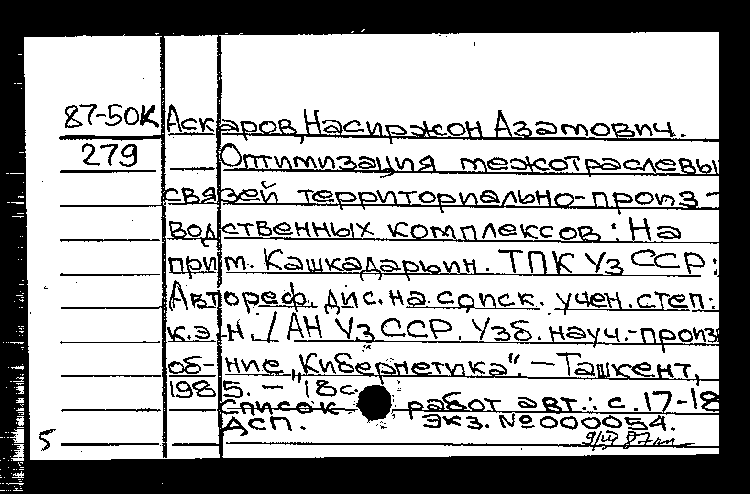 87-50К Аскаров, Насиржон Азатович.
279 Оптимизация межотраслевы
связей территориально-произ-
водственных комплексов: На
прим. Кашкадарьин. ТПК УзССР:
Автореф. дис. на соиск. учен. степ:
к.э.н. / АН УзССР. Узб. науч.-произв
об-ние "Кибернетика". — Ташкент,
1985. — 18с.
Список работ авт.: с. 17-18
ДСП. Экз. № 000054.
5